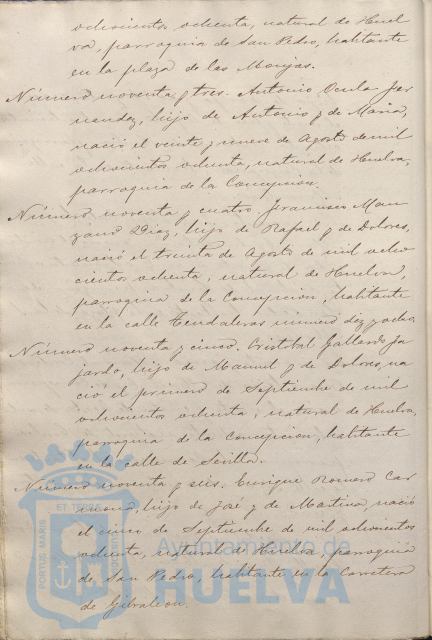 ochocientos ochenta, natural de Huel
va, parroquia de San Pedro, habitante
en la plaza de las Monjas.
Número noventa y tres. Antonio Fer
nandez, hijo de Antonio y de Maria,
nació el veinte y nueve de Agosto de mil
ochocientos ochenta, natural de Huelva,
parroquia de la Concepcion.
Número noventa y cuatro. Francisco Man
zano Diaz, hijo de Rafael y de Dolores,
nació el treinta de Agosto de mil ocho
cientos ochenta, natural de Huelva,
parroquia de la Concepcion, habitante
en la calle Tendaleras número diez y ocho.
Número noventa y cinco. Cristobal Gallardo Fa
jardo, hijo de Manuel y de Dolores, na
ció el primero de Septiembre de mil
ochocientos ochenta, natural de Huelva,
parroquia de la Concepcion, habitante
en la calle de Sevilla.
Número noventa y seis. Enrique Romero Car
mona, hijo de José y de Martina, nació
el cinco de Septiembre de mil ochocientos
ochenta, natural de Huelva, parroquia
de San Pedro, habitante en la Carretera
de Gibraleon.
PORTUS MARIS ET TERRÆ CUSTODIA
Ayuntamiento de
HUELVA